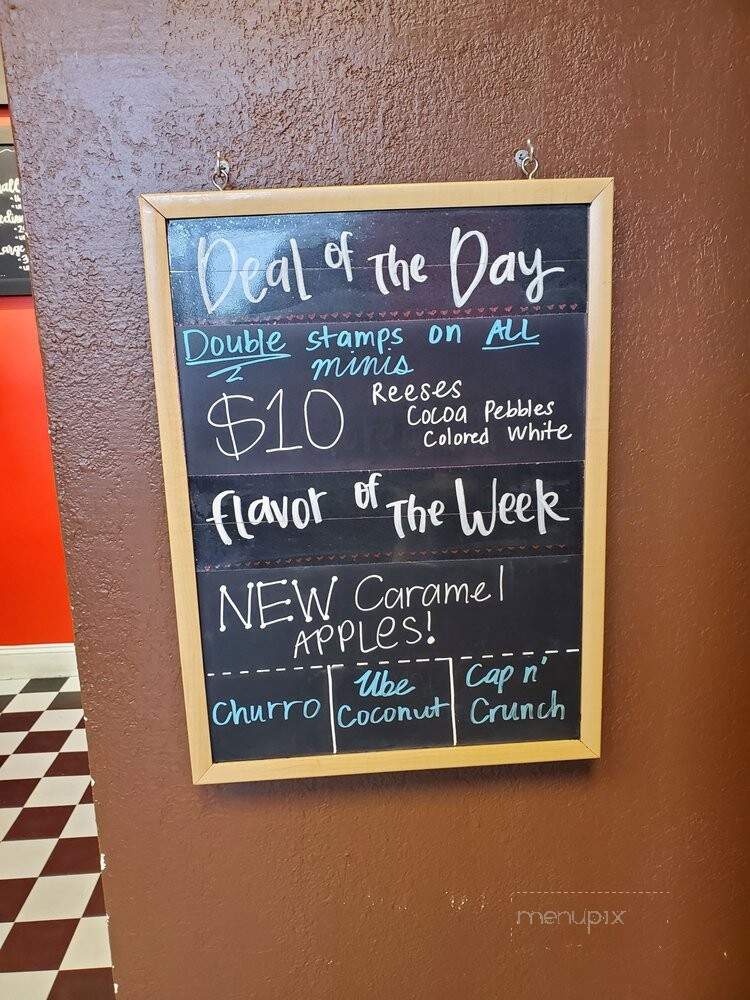 Deal of The Day
Double stamps on ALL
minis
$10
Reeses
Cocoa Pebbles
Colored White
flavor of The Week
NEW Caramel
APPLES!
Churro
Ube
Coconut
Cap n'
Crunch
menupix